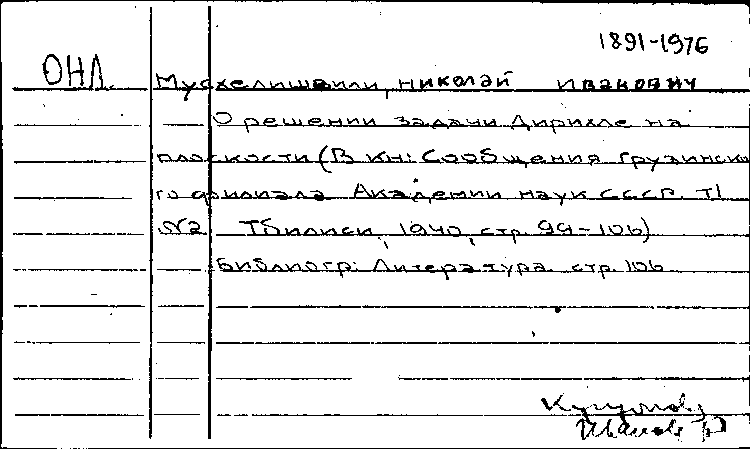 1891-1976
ОНЛ. Мусхелишвили, николай иванович
О решении задачи Дирихле на
плоскости (В кн: Сообщения грузинско
го филиала Академии наук СССР. т1
№2 Тбилиси, 1940, стр. 99-106)
Библиогр: Литература. стр. 106